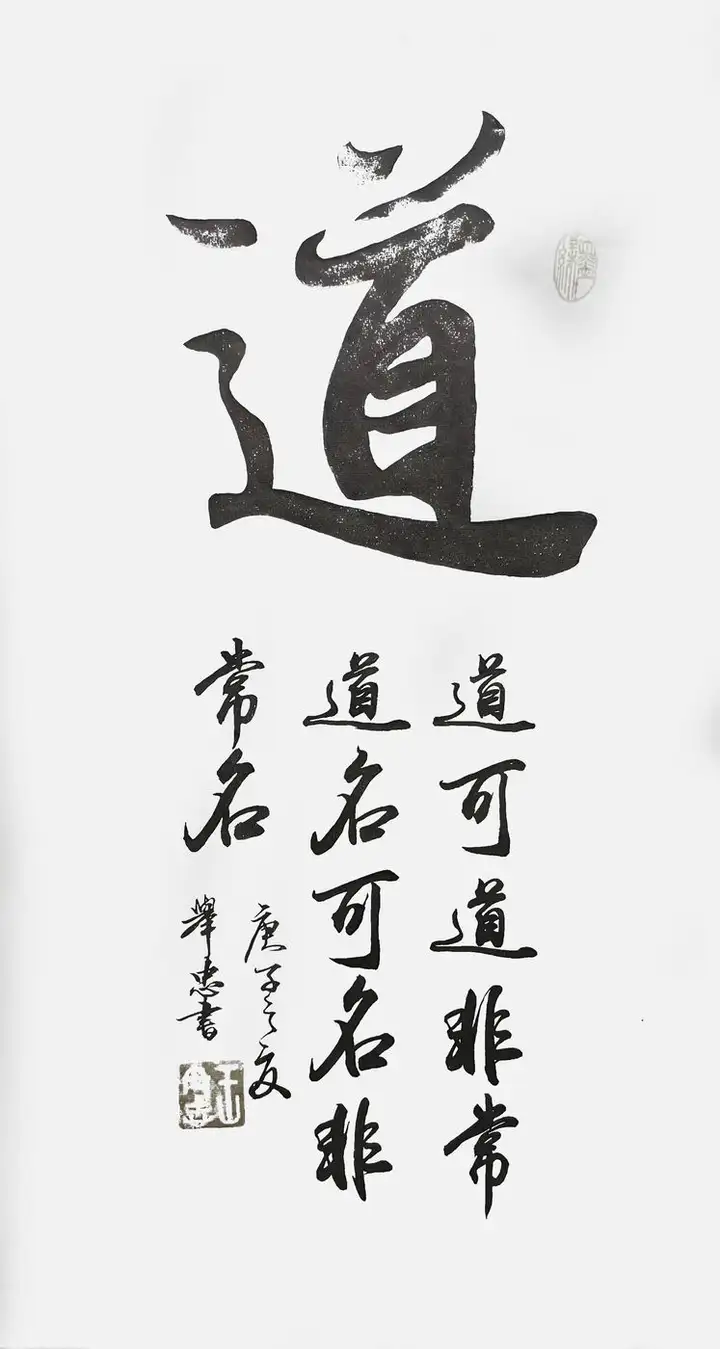 道
道可道非常
道名可名非
常名
庚子之夏
舉忠書